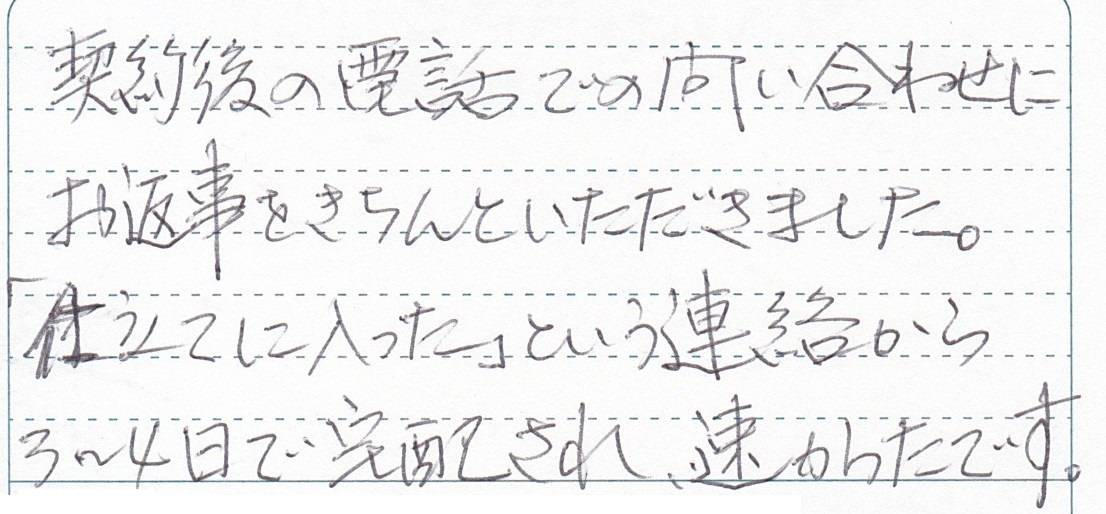 契約後の電話での問い合わせに
お返事をきちんといただきました。
「仕立てに入った」という連絡から
3~4日で宅配され、速かったです。